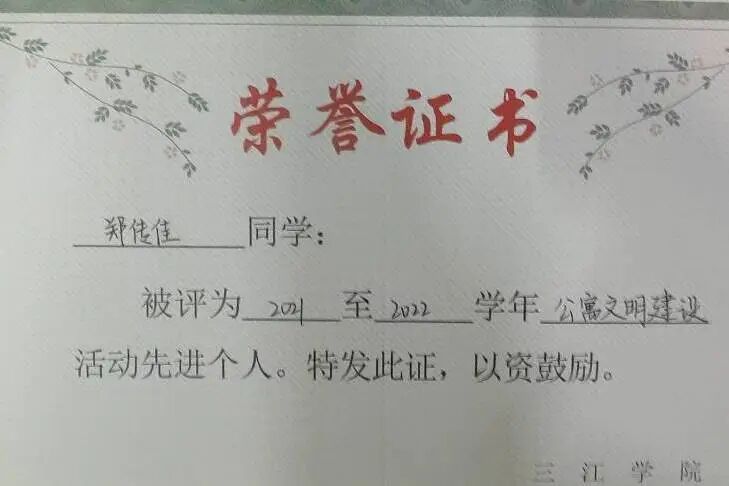 荣誉证书
郑传佳 同学：
被评为 2021 至 2022 学年 公寓文明建设
活动先进个人。特发此证，以资鼓励。
三江学院